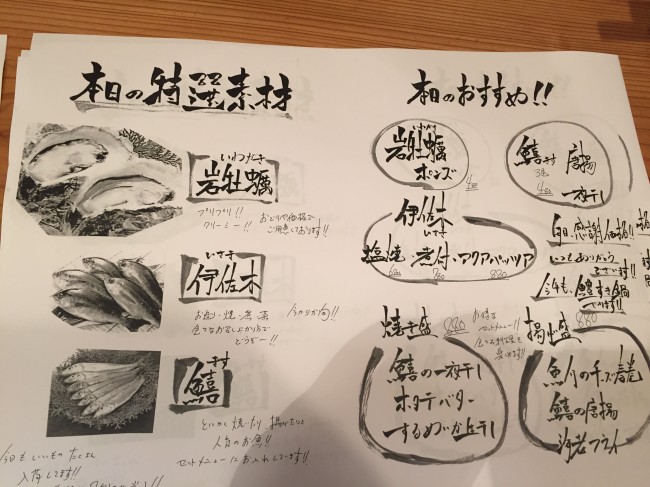 本日の特選素材
いわがき
岩牡蠣
プリプリ!!
クリーミー!!
おどろき価格で
ご用意しております!!
いさき
伊佐木
お造り・焼・煮・蒸
色々なお召し上がり方で
どうぞー!!
今が旬!!
キス
鱚
とにかく焼いたり 揚げたりと
人気のお魚!!
セットメニューにお入れしています!!
今日もいいものたくさん
入荷してます!!
本日のおすすめ!!
いわがき
岩牡蠣
ポンズ
鱚 キス
唐揚
一夜干し
伊佐木
いさき
塩焼・煮付・アクアパッツァ
880
毎日、感謝価格!!
いつもありがとう
ございます!!
今年も、鱧すき鍋
焼き盛 880
お得な
セットメニュー!!
鱚の一夜干し
ホタテバター
するめいか丘干し
揚げ盛 880
魚介のチーズ春巻
鱚の唐揚
海老フライ